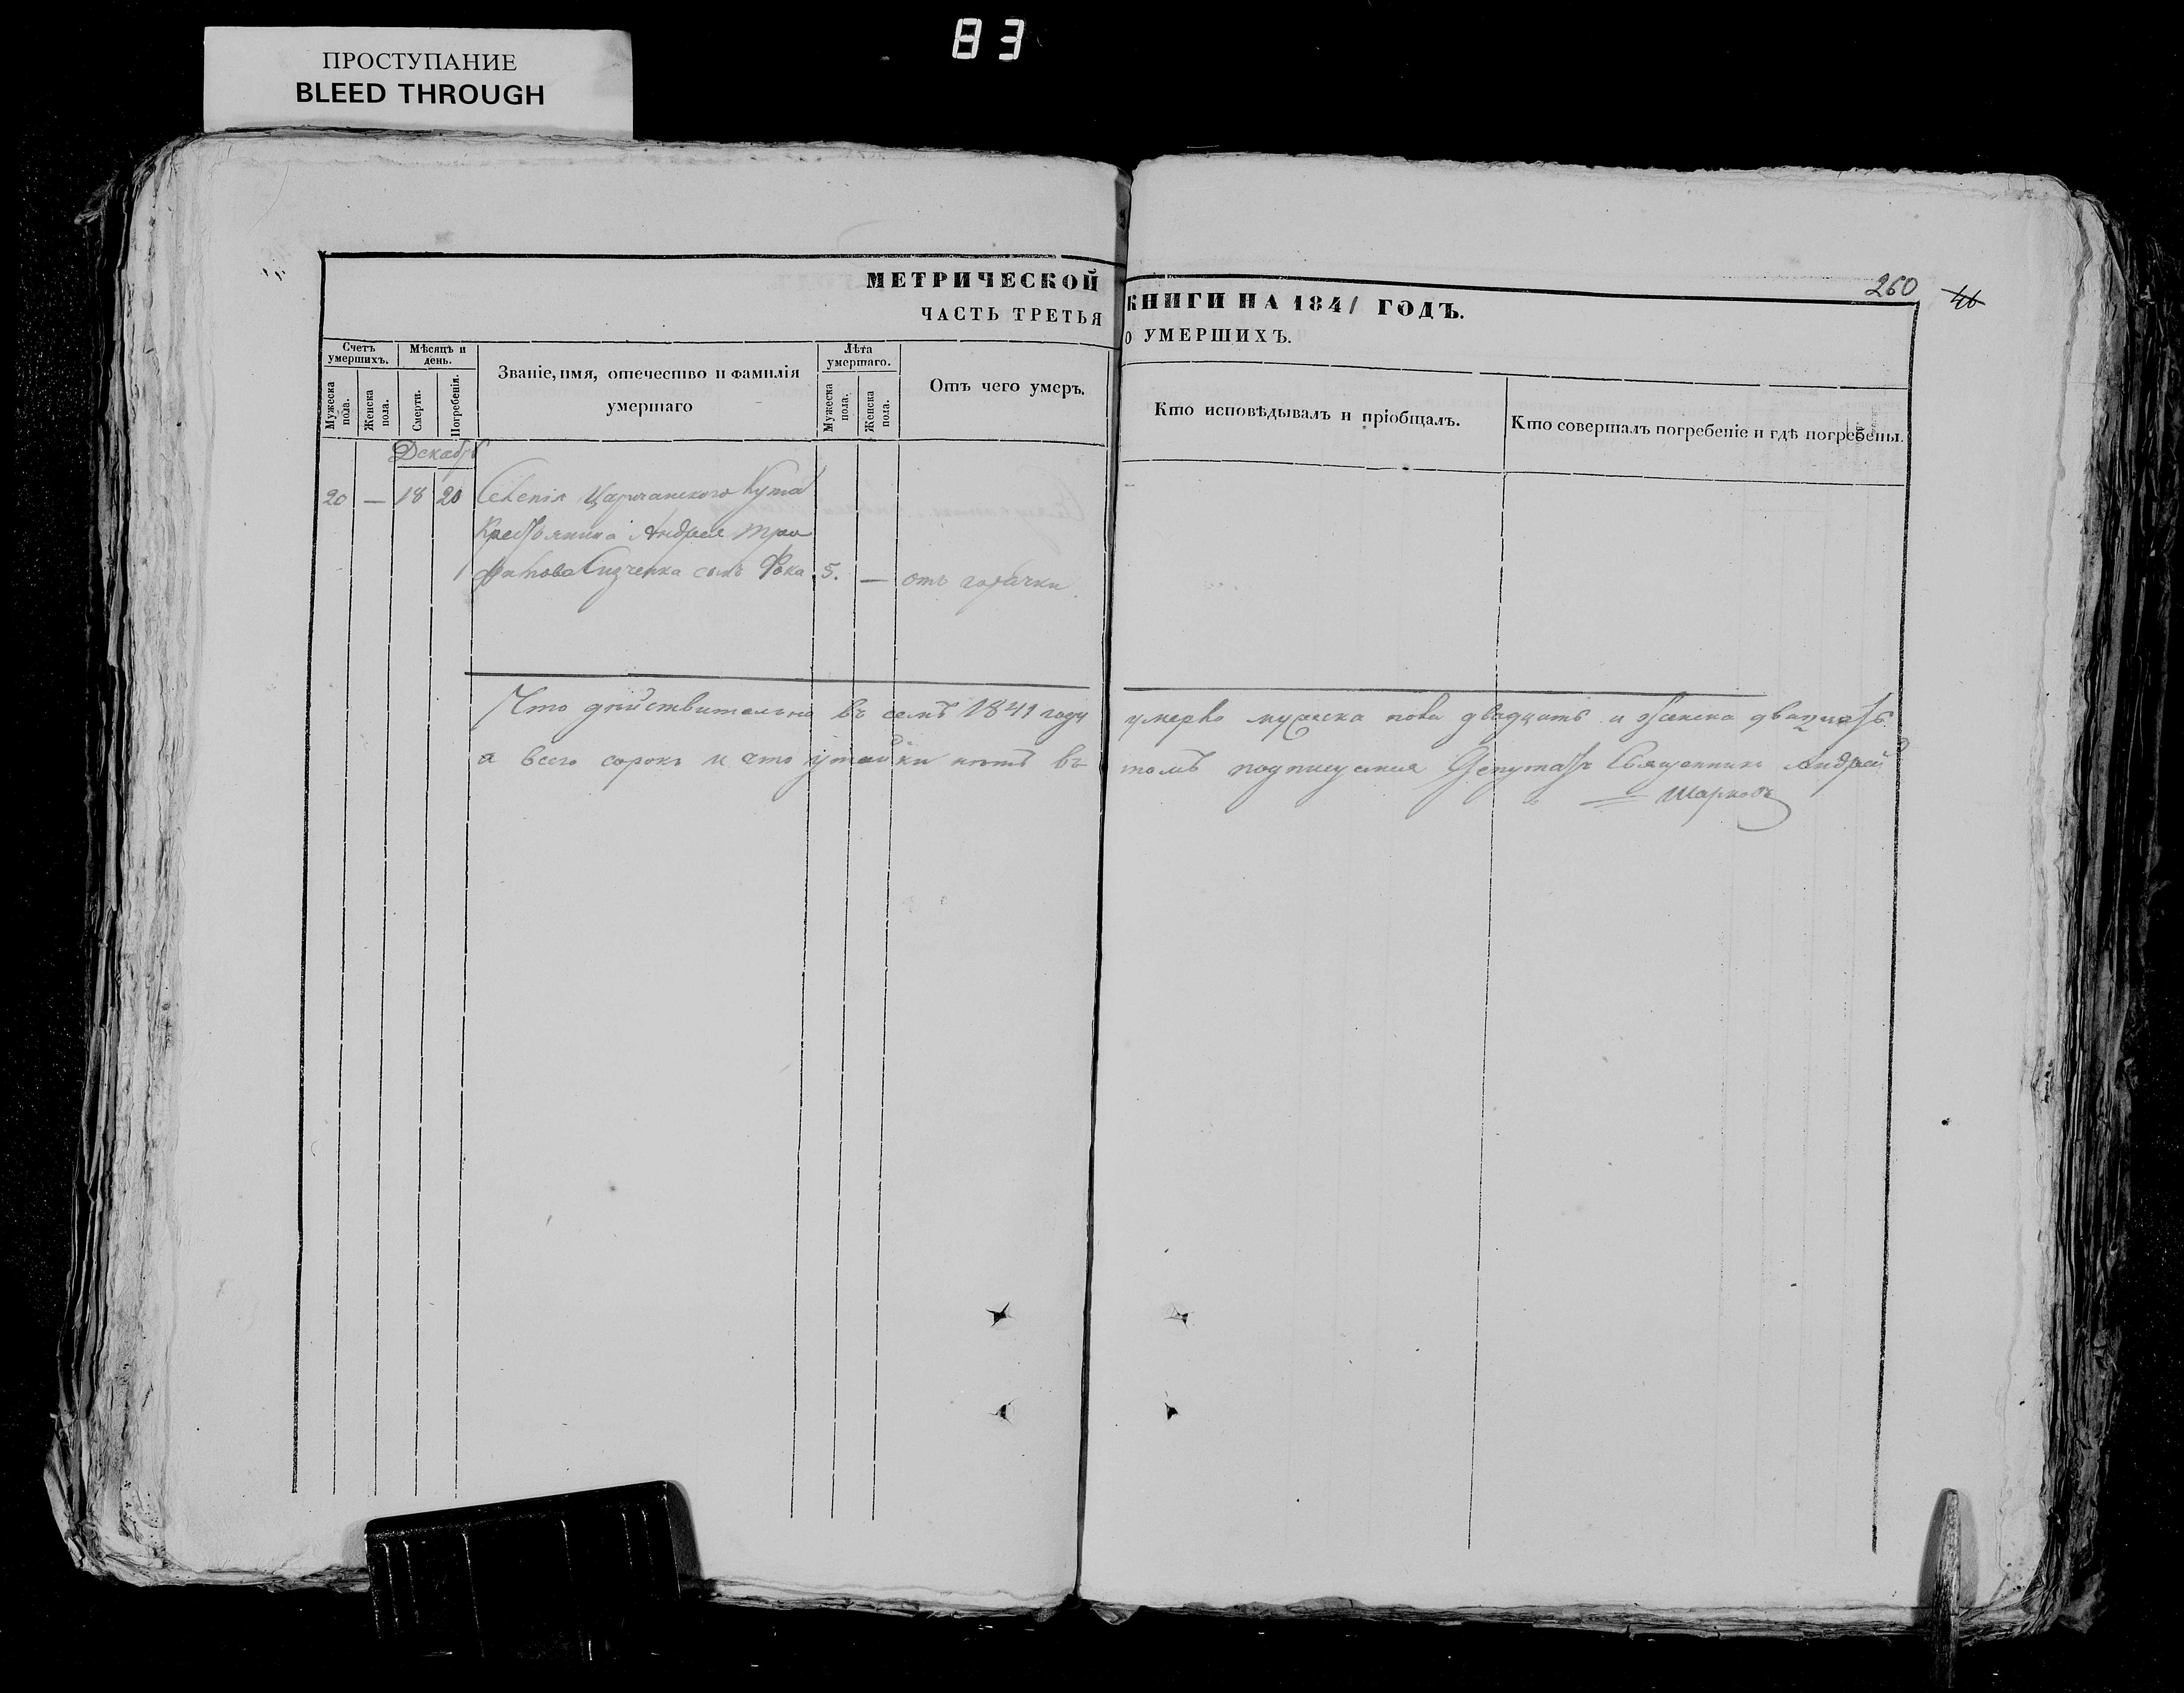 83
ПРОСТУПАНИЕ
BLEED THROUGH
МЕТРИЧЕСКОЙ КНИГИ НА 1841 ГОДЪ.
260
46
ЧАСТЬ ТРЕТЬЯ О УМЕРШИХЪ.
Счетъ умершихъ.
Мужеска пола.
Женска пола.
Мѣсяцъ и день.
Смерти.
Погребенія.
Званіе, имя, отечество и фамилія умершаго
Лѣта умершаго.
Мужеска пола.
Женска пола.
Отъ чего умеръ.
Кто исповѣдывалъ и пріобщалъ.
Кто совершалъ погребеніе и гдѣ погребены.
Декабрь
20 — 18 20 Селенія Царичанского Кута
Крестьянина Андрея Три
фанова сынъ Фока 5. — отъ горячки.
Что дѣйствительно въ семъ 1841 году умерло мужеска пола двадцать и женска двадцать
а всего сорокъ и что утайки нѣтъ въ томъ подписуемся Депутатъ Священникъ Андрей
Шарковъ